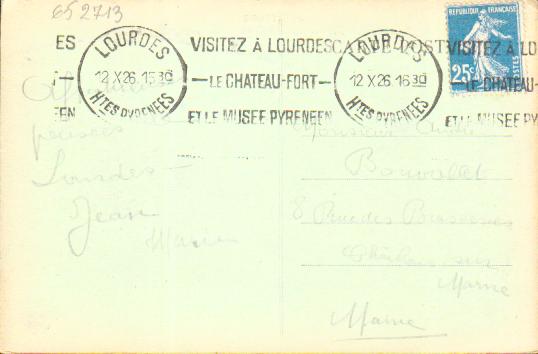 652713
ES LOURDES VISITEZ À LOURDES CARTE POSTALE LOURDES VISITEZ À LO
RÉPUBLIQUE FRANÇAISE
25c
POSTES
12 X 26 15 30 — LE CHATEAU-FORT — 12 X 26 16 30 — LE CHATEAU-
EEN HTES PYRENEES ET LE MUSEE PYRENEEN HTES PYRENEES ET LE MUSEE PY
pensées
Lourdes
Jean
Marie
Monsieur
8 Rue des
sur
Marne
Marne